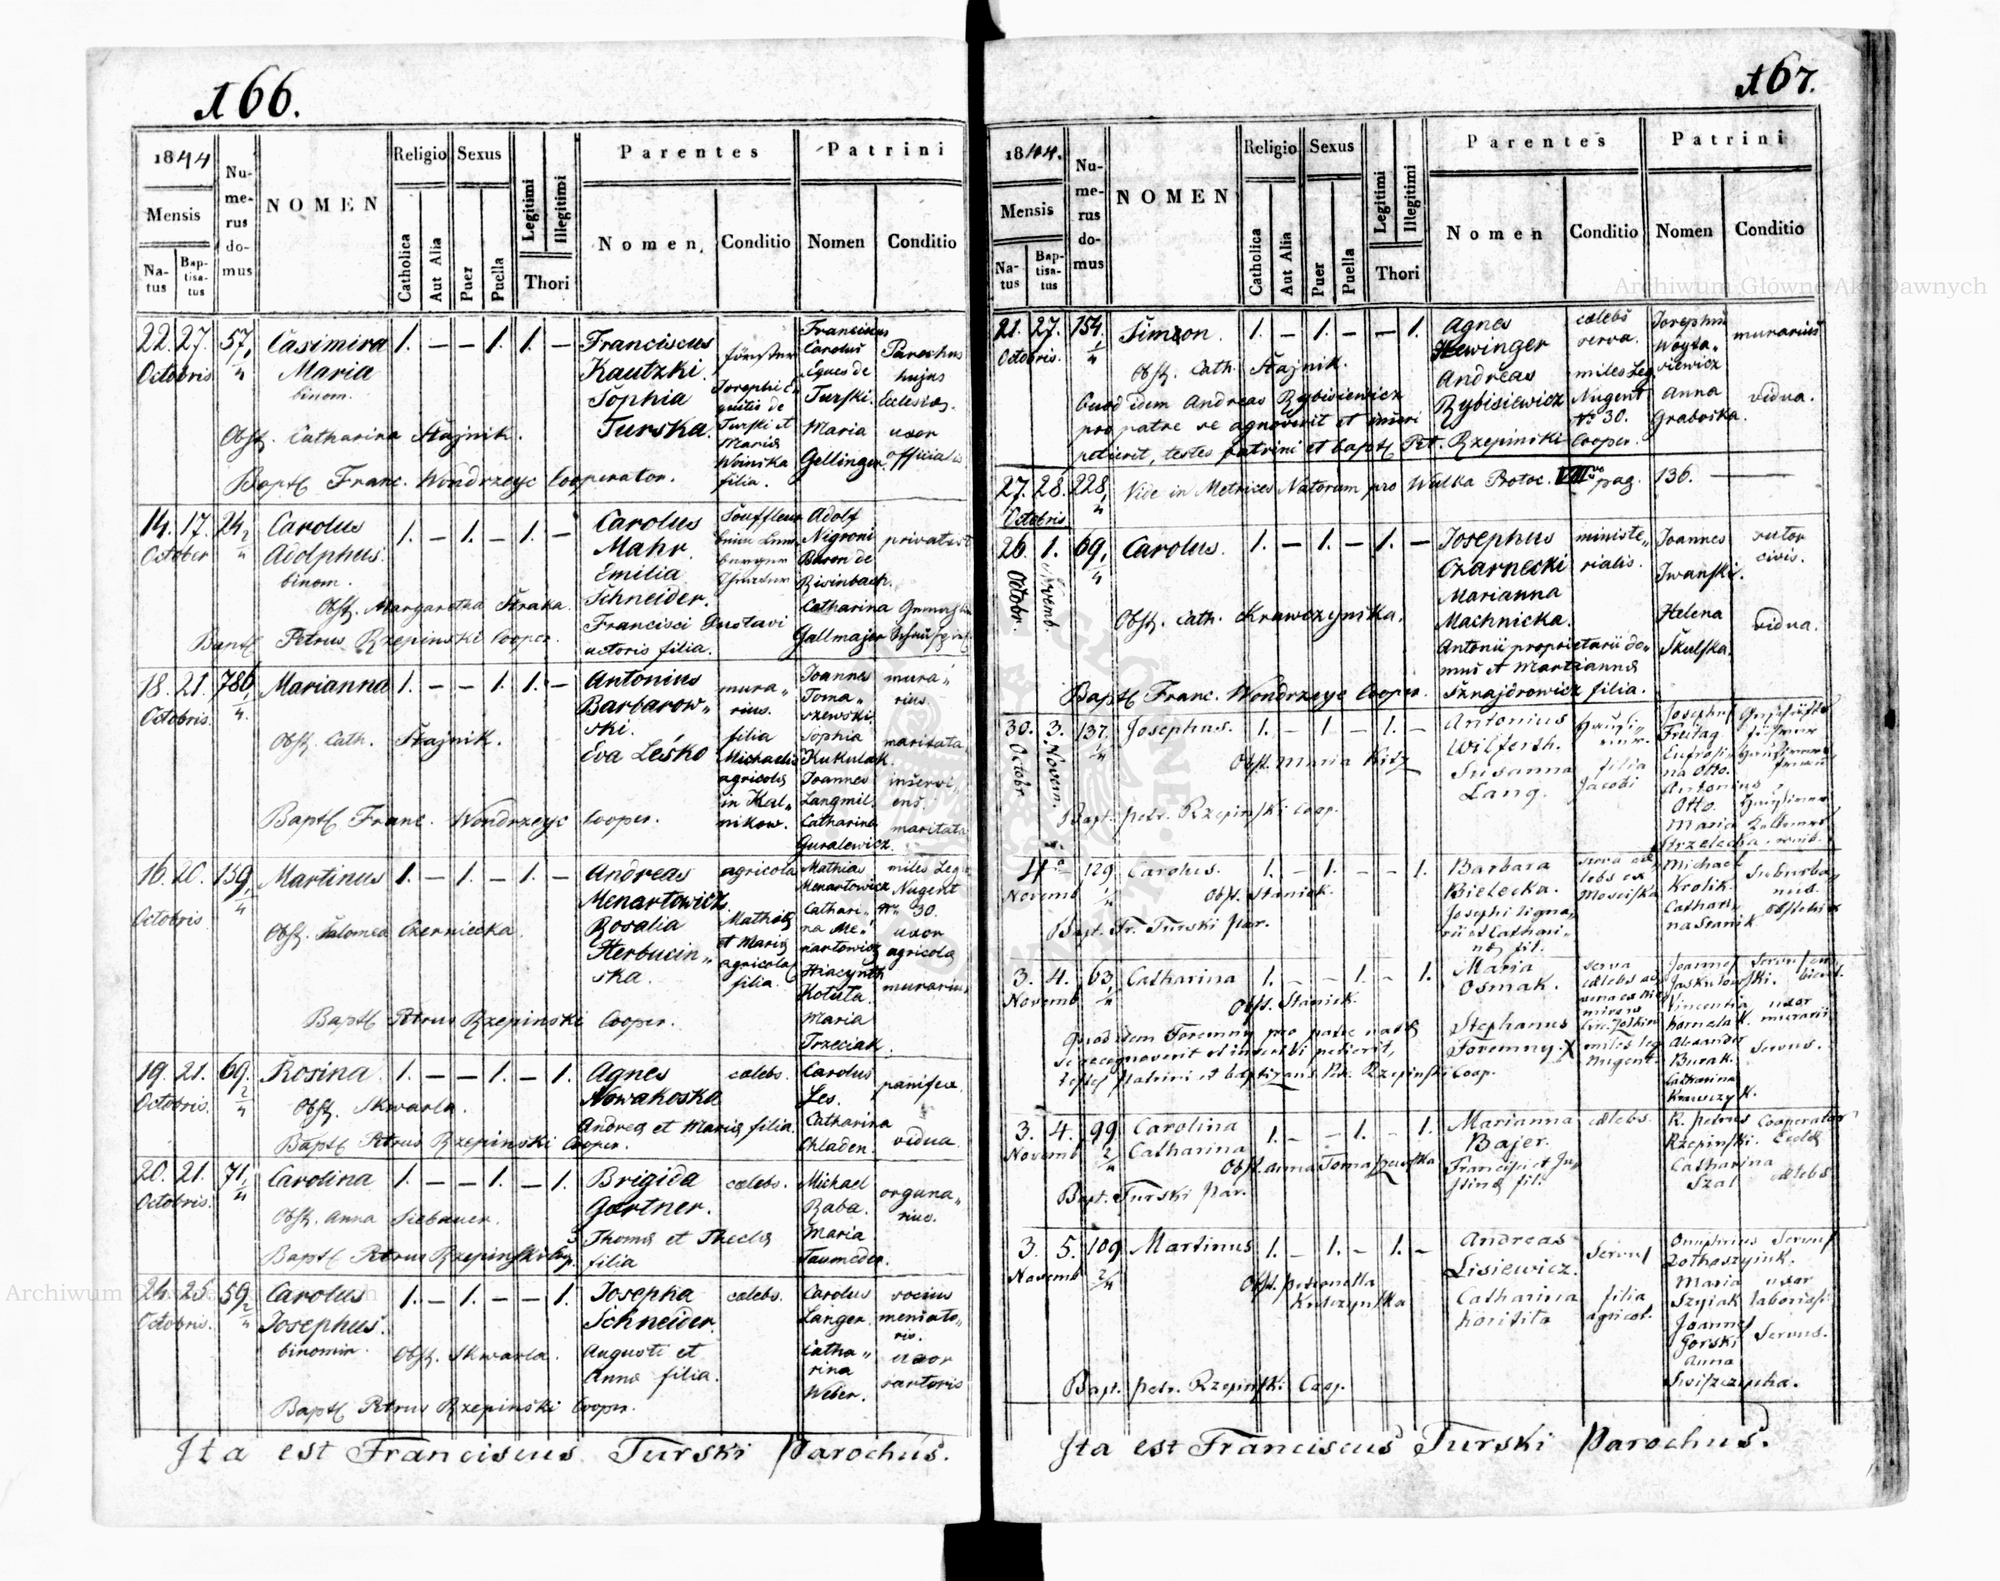 166.
1844
Numerus domus
NOMEN
Religio
Sexus
Legitimi
Illegitimi
Parentes
Patrini
Mensis
Natus
Baptisatus
Catholica
Aut Alia
Puer
Puella
Thori
Nomen
Conditio
Nomen
Conditio
22. 27. 57 1/4 Casimira 1. – – 1. 1. – Franciscus förster Franciscus
Octobris Maria Kautzki. Carolus Parochus
binom. Sophia Josephi Equitis de Eques de hujus
Turska. Turski et Turski. Ecclesiæ.
Obst. Catharina Stajnik. Maria Maria uxor
Woinska Gellinger officialis
Bapt. Franc. Wondrzeyc Cooperator. filia.
14. 17. 24 2/4 Carolus 1. – 1. – 1. – Carolus Souffleur Adolf
October Adolphus Mahr beim Lemberger Nigroni privatist
binom. Emilia Theater Baron de
Schneider. Risinbach.
Obst. Margaretha Straka. Francisci Gustavi Catharina
Bapt. Petrus Rzepinski Cooper. actoris filia. Gallmajer
18. 21. 786 1/4 Marianna 1. – – 1. 1. – Antonius mura- Joannes mura-
Octobris. Barbarow- rius. Toma- rius.
ski. filia szewski.
Obst. Cath. Stajnik. Eva Leśko Michaelis Sophia maritata.
agricolæ Kukulak.
in Kal- Joannes inservi-
nikow. Langmil. ens.
Bapt. Franc. Wondrzeyc Cooper. Catharina maritata
Guralewicz.
16. 20. 159 1/4 Martinus 1. – 1. – 1. – Andreas agricola Mathias miles Leg.
Octobris Menartowicz. Menartowicz Nugent
Rosalia Mathiæ Cathari- Nro 30.
Obst. Salomea Czerniecka. Herbucin- et Mariæ na Me- uxor
ska. agricolæ nartowicz agricolæ
filia. Hiacynth murarius
Kotuta.
Bapt. Petrus Rzepinski Cooper. Maria
Trzeciak.
19. 21. 69 2/4 Rosina. 1. – – 1. – 1. Agnes cælebs. Carolus panifex.
Octobris. Nowakoska Les.
Obst. Skwarla. Andreæ et Mariæ filia. Catharina
Bapt. Petrus Rzepinski Cooper. Chladen. vidua.
20. 21. 71 1/4 Carolina 1. – – 1. – 1. Brigida cælebs. Michael organa-
Octobris. Gartner. Baba. rius.
Obst. Anna Siebauer. Thomæ et Theclæ Maria
Bapt. Petrus Rzepinski Coop. filia Taumeder.
24. 25. 59 2/4 Carolus 1. – 1. – – 1. Josepha cælebs. Carolus socius
Octobris. Josephus. Schneider. Langer
binomin. Augusti et Catha- uxor
Obst. Skwarla. Annæ filia. rina sartoris
Weber.
Bapt. Petrus Rzepinski Cooper.
Ita est Franciscus Turski Parochus.
167.
1844.
Numerus domus
NOMEN
Religio
Sexus
Legitimi
Illegitimi
Parentes
Patrini
Mensis
Natus
Baptisatus
Catholica
Aut Alia
Puer
Puella
Thori
Nomen
Conditio
Nomen
Conditio
21. 27. 154 1/4 Simeon. 1. – 1. – – 1. Agnes cælebs Josephus murarius
Octobris. Hewinger serva. Woyta-
Obst. Cath. Stajnik. Andreas miles Leg. siewicz
Quod idem Andreas Rybisiewicz Rybisiewicz Nugent Anna vidua.
pro patre se agnoverit et inseri Nro 30. Graboska.
petierit, testes patrini et bapt. Pet. Rzepinski Cooper.
27. 28. 228 1/4 Vide in Metrices Natorum pro Wulka Protoc. VIII pag. 136.
Octobris
26. 1. 69 1/4 Carolus. 1. – 1. – 1. – Josephus ministe- Joannes sutor
Octobr. Novemb. Czarnecki rialis. Iwanski. civis.
Marianna
Obst. Cath. Krawczynska. Machnicka. Helena vidua.
Antonii proprietarii do- Skulska.
mus et Mariannæ
Bapt. Franc. Wondrzeyc Cooper. Sznajdrowicz filia.
30. 3. 137 1/4 Josephus. 1. – 1 – 1. – Antonius Josephus
Octobr Novem. Wilfersh. Freitag
Obst. Maria Kitz Susanna filia Eufrosi-
Lang. Jacobi na Otto.
Antonius
Otto.
Bapt. Petr. Rzepinski Coop. Maria
Strzelecka.
4a – 129 1/4 Carolus. 1. – 1. – – 1. Barbara serva cæ- Michael suburba-
Novemb Obst. Staniek. Bielecka. lebs ex Krolik. nus.
Josephi ligna- Mosciska Cathari- obstetrix
Bapt. Fr. Turski Par. rii et Cathari- na Stanik
næ fil.
3. 4. 63 1/4 Catharina 1. – – 1. – 1. Maria serva Joannes
Novemb Obst. Staniek. Osmak. cælebs Jaskulowski.
Vincentia uxor
Quod idem Foremny pro patre natæ Stephanus Kornelak. murarii
se recognoverit et inscribi petierit, Foremny. X miles leg. Alexander servus.
testes patrini et baptizans Petr. Rzepinski Coop. Nugent. Burak.
Catharina
Krawczyk.
3. 4. 99 2/4 Carolina 1. – – 1. – 1. Marianna cælebs. R. Petrus Cooperator
Novemb Catharina Bajer. Rzepinski. Eccle
Obst. Anna Tomaszewska Francisci et Ju- Catharina cælebs
Bapt. Turski Par. stinæ fil. Szal
3. 5. 109 2/4 Martinus 1. – 1. – 1. – Andreas servus Onuphrius servus
Novemb Lisiewicz.
Obst. Petronella Catharina filia Maria uxor
Kulczynska agricol. Szyiak laboriosi
Joannes
Gorski servus.
Anna
Bapt. Petr. Rzepinski Coop.
Ita est Franciscus Turski Parochus.
Archiwum Główne Akt Dawnych
Archiwum Główne Akt Dawnych